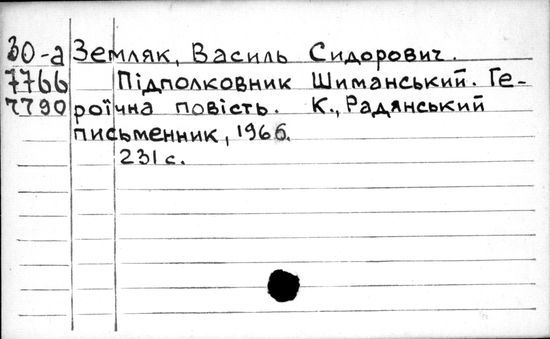 30-а Земляк, Василь Сидорович.
7766 Підполковник Шиманський. Ге-
7790 роїчна повість. К., Радянський
письменник, 1966.
231 с.